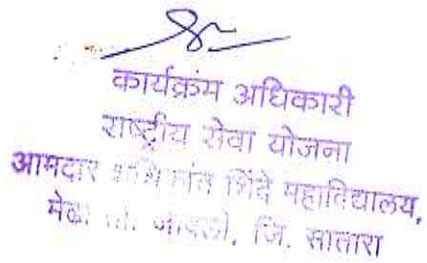 कार्यक्रंम अधिकारी
राष्ट्रीय सेवा योजना
आमदार शशिकांत शिंदे महाविद्यालय,
मेढा ता. जावली, जि. सातारा